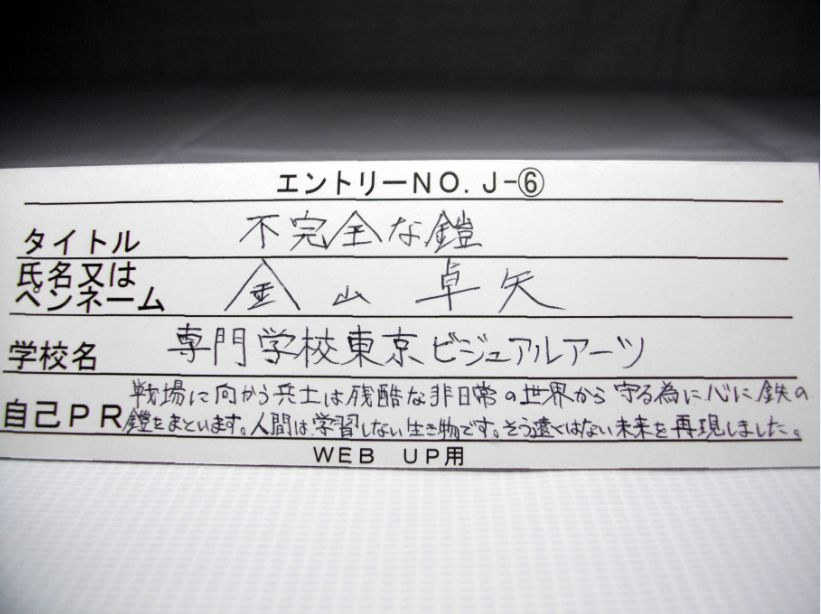 エントリーNO.J-⑥
タイトル 不完全な鎧
氏名又は
ペンネーム 金山 卓矢
学校名 専門学校東京ビジュアルアーツ
戦場に向かう兵士は残酷な非日常の世界から守る為に心に鉄の
自己PR 鎧をまといます。人間は学習しない生き物です。そう遠くはない未来を再現しました。
WEB UP用